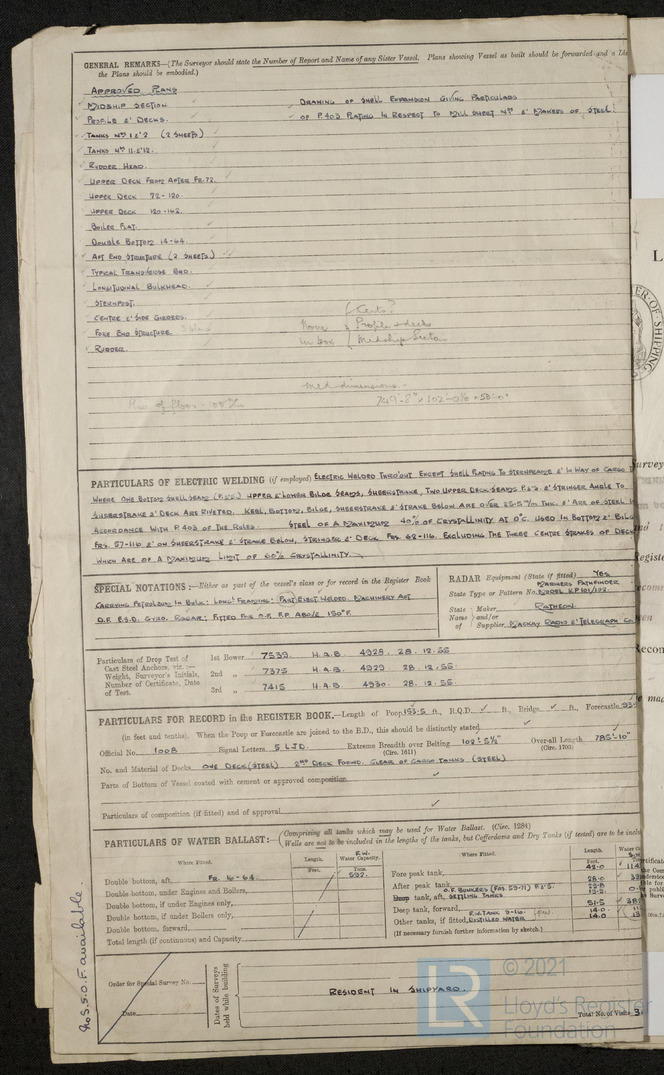 GENERAL REMARKS—(The Surveyor should state the Number of Report and Name of any Sister Vessel. Plans showing Vessel as built should be forwarded and a
the Plans should be embodied.)
APPROVED PLANS
MIDSHIP SECTION
PROFILE & DECKS.
TANKS Nos 1 & 2 (2 SHEETS)
TANKS Nos 11 & 12.
RUDDER HEAD.
UPPER DECK FROM AFTER FR. 72.
UPPER DECK 72-120.
UPPER DECK 120-142.
BOILER FLAT.
DOUBLE BOTTOM 14-64.
AFT END STRUCTURE (2 SHEETS)
TYPICAL TRANSVERSE BHD.
LONGITUDINAL BULKHEAD.
STERNPOST.
CENTRE & SIDE GIRDERS.
FORE END STRUCTURE
RUDDER.
DRAWING OF SHELL EXPANSION GIVING PARTICULARS
OF P.403 PLATING IN RESPECT TO MILL SHEET Nos & MAKERS OF STEEL
Certs?
Profile & deck
Midship Section
None
in box
med dimensions.
PARTICULARS OF ELECTRIC WELDING (if employed) ELECTRIC WELDED THRO'OUT EXCEPT SHELL PLATING TO STERNFRAME & IN WAY OF CARGO
WHERE ONE BOTTOM SHELL SEAM (P.&S.) UPPER & LOWER BILGE SEAMS, SHEERSTRAKE, TWO UPPER DECK SEAMS P.&S. & STRINGER ANGLE TO
SHEERSTRAKE & DECK ARE RIVETED. KEEL, BOTTOM, BILGE, SHEERSTRAKE & STRAKE BELOW ARE OVER 25.5 m/m THK. & ARE OF STEEL IN
ACCORDANCE WITH P.403 OF THE RULES. STEEL OF A MAXIMUM 40% OF CRYSTALLINITY AT 0°C. USED IN BOTTOM & BILGE
FRS. 57-116 & ON SHEERSTRAKE & STRAKE BELOW, STRINGER & DECK FRS. 62-116. EXCLUDING THE THREE CENTRE STRAKES OF DECK
WHICH ARE OF A MAXIMUM LIMIT OF 60% CRYSTALLINITY.
SPECIAL NOTATIONS:—Either as part of the vessel's class or for record in the Register Book
CARRYING PETROLEUM IN BULK: LONGL FRAMING: PART ELECT. WELDED. MACHINERY AFT
D.F. E.S.D. GYRO. RADAR; FITTED FOR O.F. F.P. ABOVE 150°F.
RADAR Equipment (State if fitted) YES
MARINERS PATHFINDER
State Type or Pattern No. MODEL KP101/102.
State Name of Maker and/or Supplier
RATHEON.
MACKAY RADIO & TELEGRAPH CO
Particulars of Drop Test of Cast Steel Anchors, viz.:—
Weight, Surveyor's Initials,
Number of Certificate, Date
of Test.
1st Bower 7539. H.A.B. 4928. 28. 12. 55
2nd „ 7375 H.A.B. 4929 28. 12. 55.
3rd „ 7415 H.A.B. 4930. 28. 12. 55.
PARTICULARS FOR RECORD in the REGISTER BOOK.—Length of Poop 153.5 ft., R.Q.D. ft., Bridge ft., Forecastle
(in feet and tenths). When the Poop or Forecastle are joined to the B.D., this should be distinctly stated
Official No. 1008 Signal Letters 5 L J D. Extreme Breadth over Belting 102'-5½" Over-all Length 785'-10"
(Circ. 1611) (Circ. 1703)
No. and Material of Decks ONE DECK (STEEL) 2ND DECK FORWD. CLEAR OF CARGO TANKS (STEEL)
Parts of Bottom of Vessel coated with cement or approved composition
Particulars of composition (if fitted) and of approval
PARTICULARS OF WATER BALLAST:—(Comprising all tanks which may be used for Water Ballast. (Circ. 1284)
Wells are not to be included in the lengths of the tanks, but Cofferdams and Dry Tanks (if tested) are to be
Where Fitted. Length. F.W. Water Capacity.
Feet. Tons.
Double bottom, aft, FR. 16-64. 592.
Double bottom, under Engines and Boilers,
Double bottom, if under Engines only,
Double bottom, if under Boilers only,
Double bottom, forward,
Total length (if continuous) and Capacity
Where Fitted. Length.
Fore peak tank, 42.0
After peak tank, 28.0
O.F. BUNKERS (FRS 59-71) P.&S. 22.8
Deep tank, aft, SETTLING TANKS
Deep tank, forward, 51.5
F.W. TANK 9-16. 14.0
Other tanks, if fitted, DISTILLED WATER 14.0
(If necessary furnish further information by sketch.)
No S.S.O.F. available
Order for Special Survey No.
Date
Dates of Surveys held while building
RESIDENT IN SHIPYARD.
Total No. of Visits
LR
© 2021
Lloyd's Register
Foundation